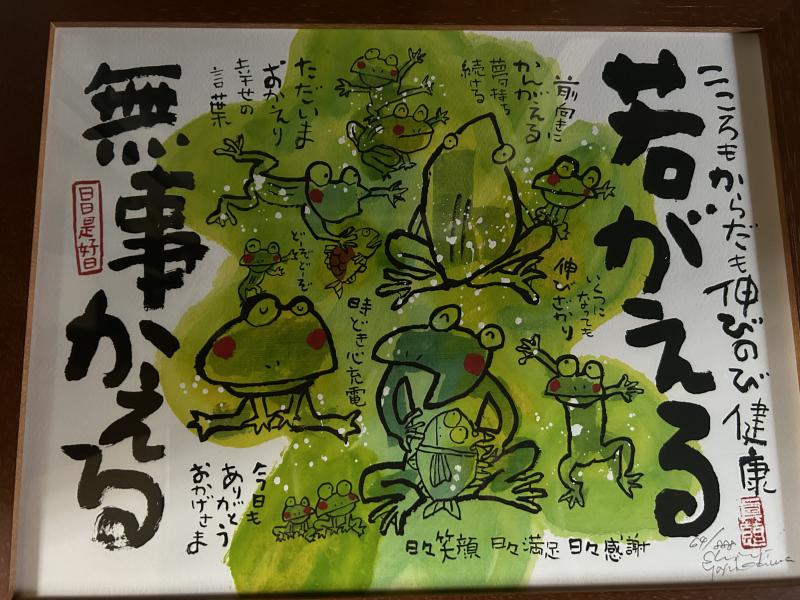 こころもからだも伸びのび健康
若がえる
前向きに
かんがえる
夢を持ち
続ける
いくつに
なっても
伸びざかり
ただいま
おかえり
幸せの
言葉
どーぞどーぞ
時どき心充電
無事かえる
日日是好日
今日も
ありがとう
おかげさま
日々笑顔 日々満足 日々感謝
64/888